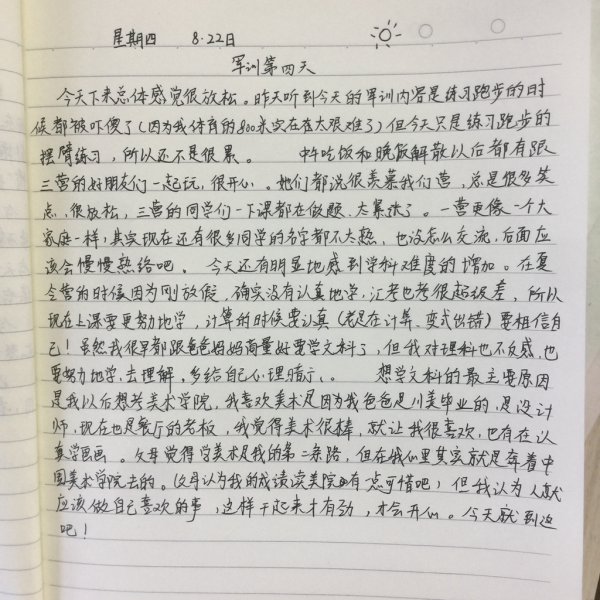 星期四 8.22日
军训第四天
今天下来总体感觉很放松。昨天听到今天的军训内容是练习跑步的时
候都被吓傻了(因为我体育的800米实在是太艰难了)但今天只是练习跑步的
摆臂练习，所以还不是很累。 中午吃饭和晚饭解散以后都有跟
三营的好朋友们一起玩，很开心。她们都说很羡慕我们营，总是很多笑
点，很放松，三营的同学们一下课都在做题、太累了。一营更像一个大
家庭一样，其实现在还有很多同学的名字都不太熟，也没怎么交流，后面应
该会慢慢熟络吧。 今天还有明显地感到学科难度的增加。在夏
令营的时候因为刚放假，确实没有认真地学，汇考也考很超级差，所以
现在上课要更努力地学，计算的时候要认真(老是在计算、变式出错)要相信自
己！虽然我很早都跟爸爸妈妈商量好要学文科了，但我对理科也不反感，也
要努力地学，去理解，多给自己心理暗示。 想学文科的最主要原因
是我以后想考美术学院，我喜欢美术是因为我爸爸是川美毕业的，是设计
师，现在也是餐厅的老板，我觉得美术很棒，就让我很喜欢，也有在认
真学画画。父母觉得学美术是我的第二条路，但在我心里其实就是奔着中
国美术学院去的。(父母认为我的成绩读美院有一点可惜吧)但我认为人就
应该做自己喜欢的事，这样干起来才有劲，才会开心。今天就到这
吧！